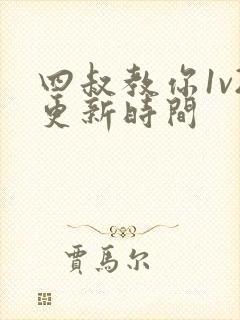 四叔教你1v2
更新時間
賈馬尔